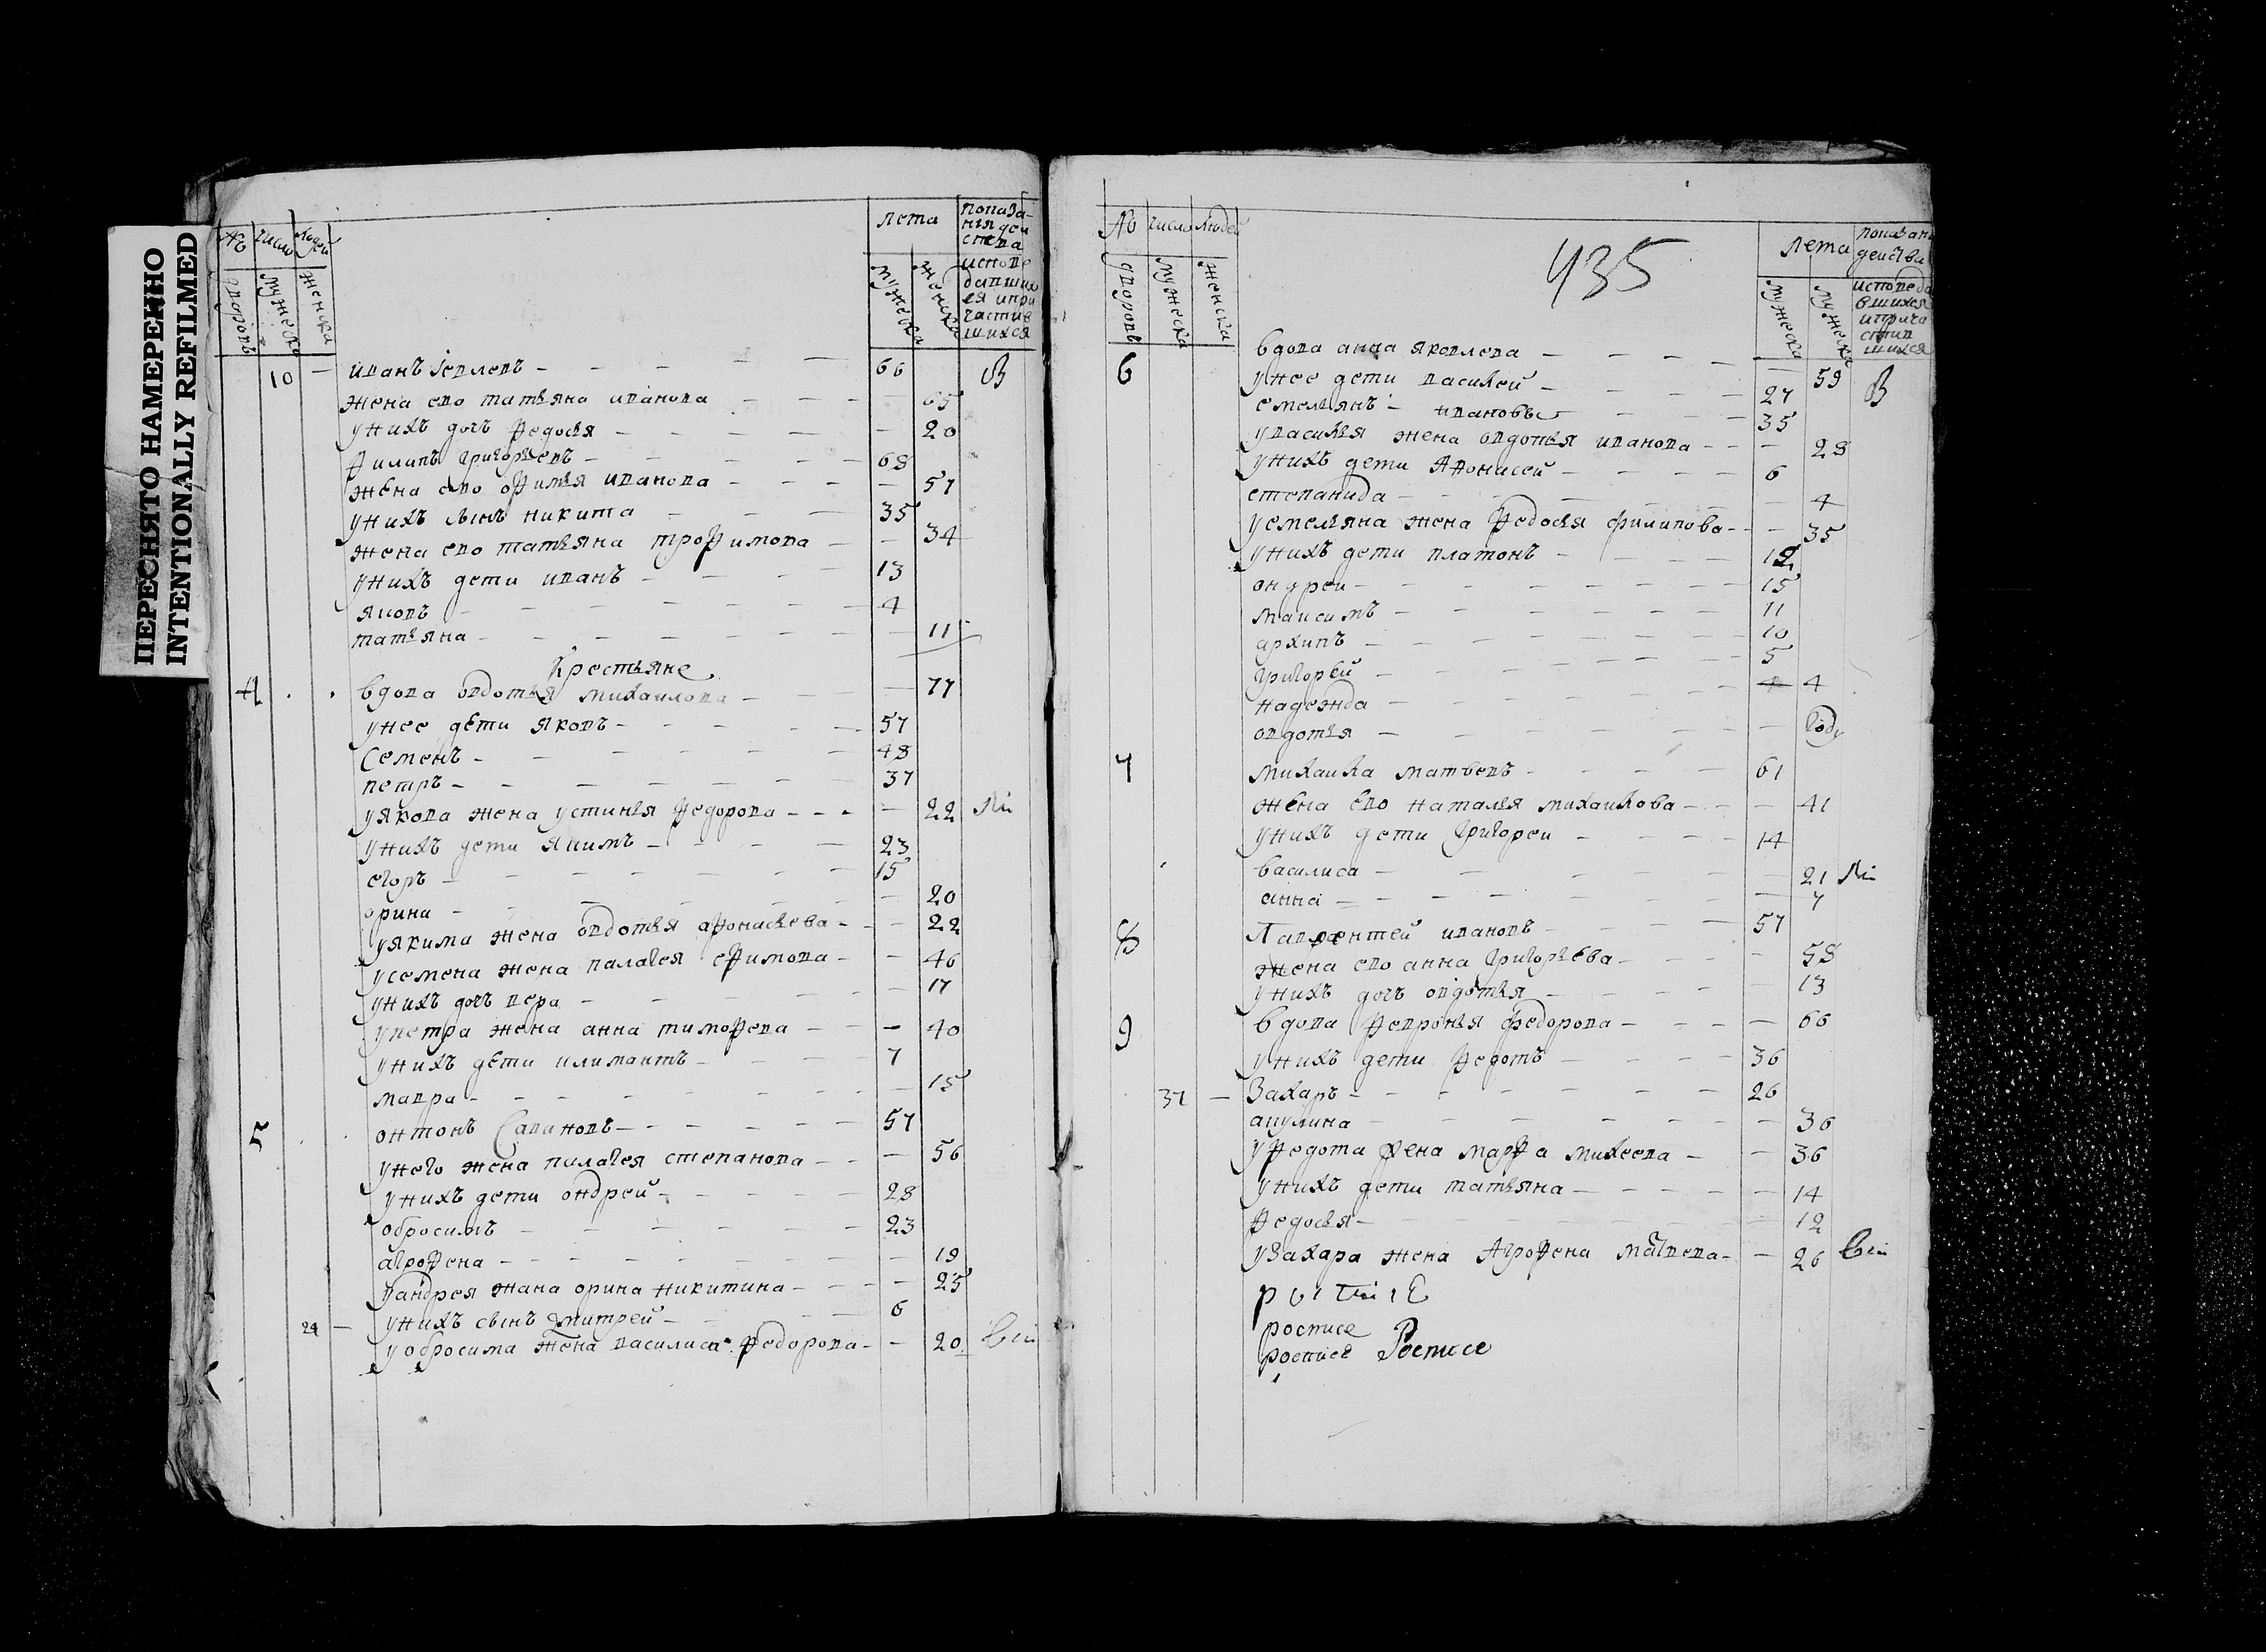 ПЕРЕСНЯТО НАМЕРЕННО
INTENTIONALLY REFILMED
№ число людей
дворовъ мужеска женска
лета
мужеска женска
показа-
ния дей
ства
исповедавшихся и причастившихся
10 — иванъ Іевлевъ — 66 В
жена ево татьяна иванова — 65
у нихъ дочь федосья — 20
филипъ григорьевъ — 68
жена ево офимья иванова — 57
у нихъ сынъ никита — 35
жена ево татьяна трофимова — 34
у нихъ дети иванъ — 13
яковъ — 4
татьяна — 11
Крестьяне
4 вдова овдотья михаилова — 77
у нее дети яковъ — 57
Семенъ — 48
петръ — 37
у якова жена устинья федорова — 22
у нихъ дети якимъ — 23
егоръ — 15
орина — 20
у якима жена овдотья афонасьева — 22
у семена жена палагея ефимова — 46
у нихъ дочь вера — 17
у петра жена анна тимофева — 40
у нихъ дети климантъ — 7
мавра — 15
5 онтонъ Савиновъ — 57
у него жена пилагея степанова — 56
у нихъ дети ондрей — 28
обросимъ — 23
агрофена — 19
у андрея жана орина никитина — 25
у нихъ сынъ дмитрей — 6
24 — у обросима жена василиса федорова — 20
435
№ число людей
дворовъ мужеска женска
лета
мужеска мужеска
показани действа
исповедавшихся и причастившихся
6 вдова анна яковлева — 59 В
у нее дети василей — 27
емельянъ — ивановы — 35
у василья жена овдотья иванова — 28
у нихъ дети Афонасей — 6
степанида — 4
у емельяна жена федосья филипова — 35
у нихъ дети платонъ — 12
ондреи — 15
максимъ — 11
архипъ — 10
григорей — 5
надежда — 4
овдотья — году
7 михаила матвевъ — 61
жена ево наталья михаилова — 41
у нихъ дети григореи — 14
василиса — 21
анна — 7
8 Лаврентей ивановъ — 57
жена ево анна григорьева — 58
у нихъ дочь овдотья — 13
9 вдова февронья федорова — 66
у нихъ дети федотъ — 36
37 — Захаръ — 26
акулина — 36
у федота жена марфа михеева — 36
у нихъ дети татьяна — 14
федосья — 12
у Захара жена Агрофена матвева — 26
росписе
росписе Росписе